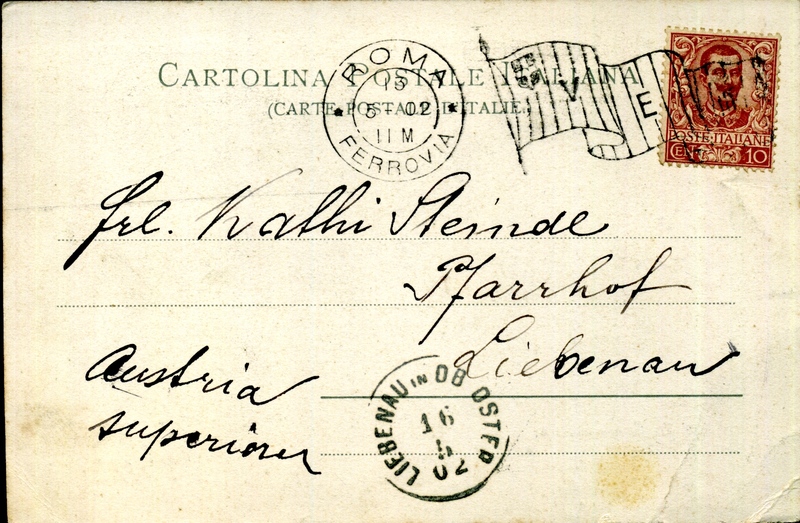 CARTOLINA POSTALE ITALIANA
(CARTE POSTALE D'ITALIE)
ROMA
15
5-02
11 M
FERROVIA
V E
POSTE ITALIANE
10
Frl. Kathi Steindl
Pfarrhof
Liebenau
Austria
superiore
LIEBENAU IN OB OSTER
16
5
02